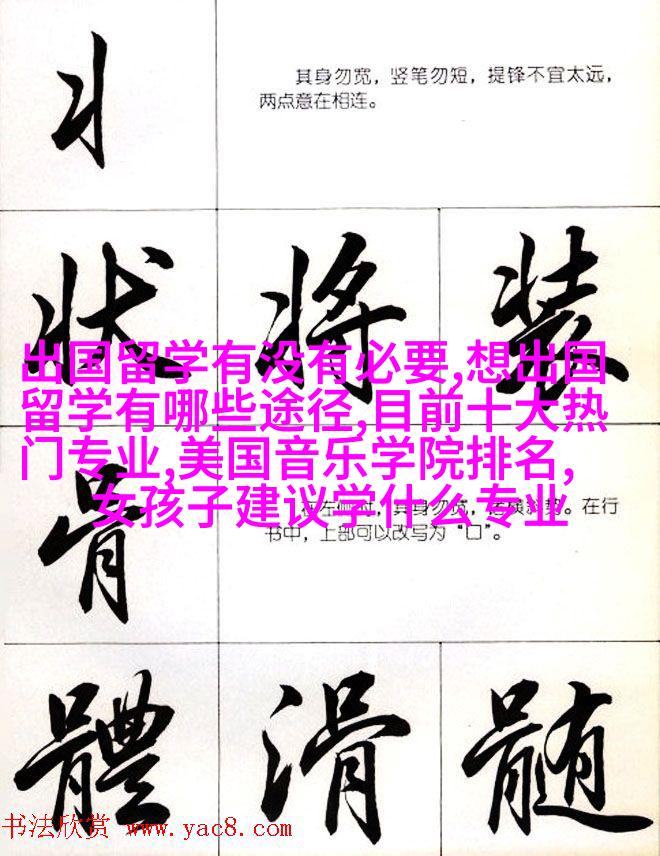 丬
其身勿宽，竖笔勿短，提锋不宜太远，
两点意在相连。
状 将 装
出国留学有没有必要,想出国
留学有哪些途径,目前十大热
门专业,美国音乐学院排名,
女孩子建议学什么专业
骨
在左侧时，其身勿宽，笔横斜势。在行
书中，上部可以改写为“口”。
體 滑 髓
书法欣赏 www.yac8.com